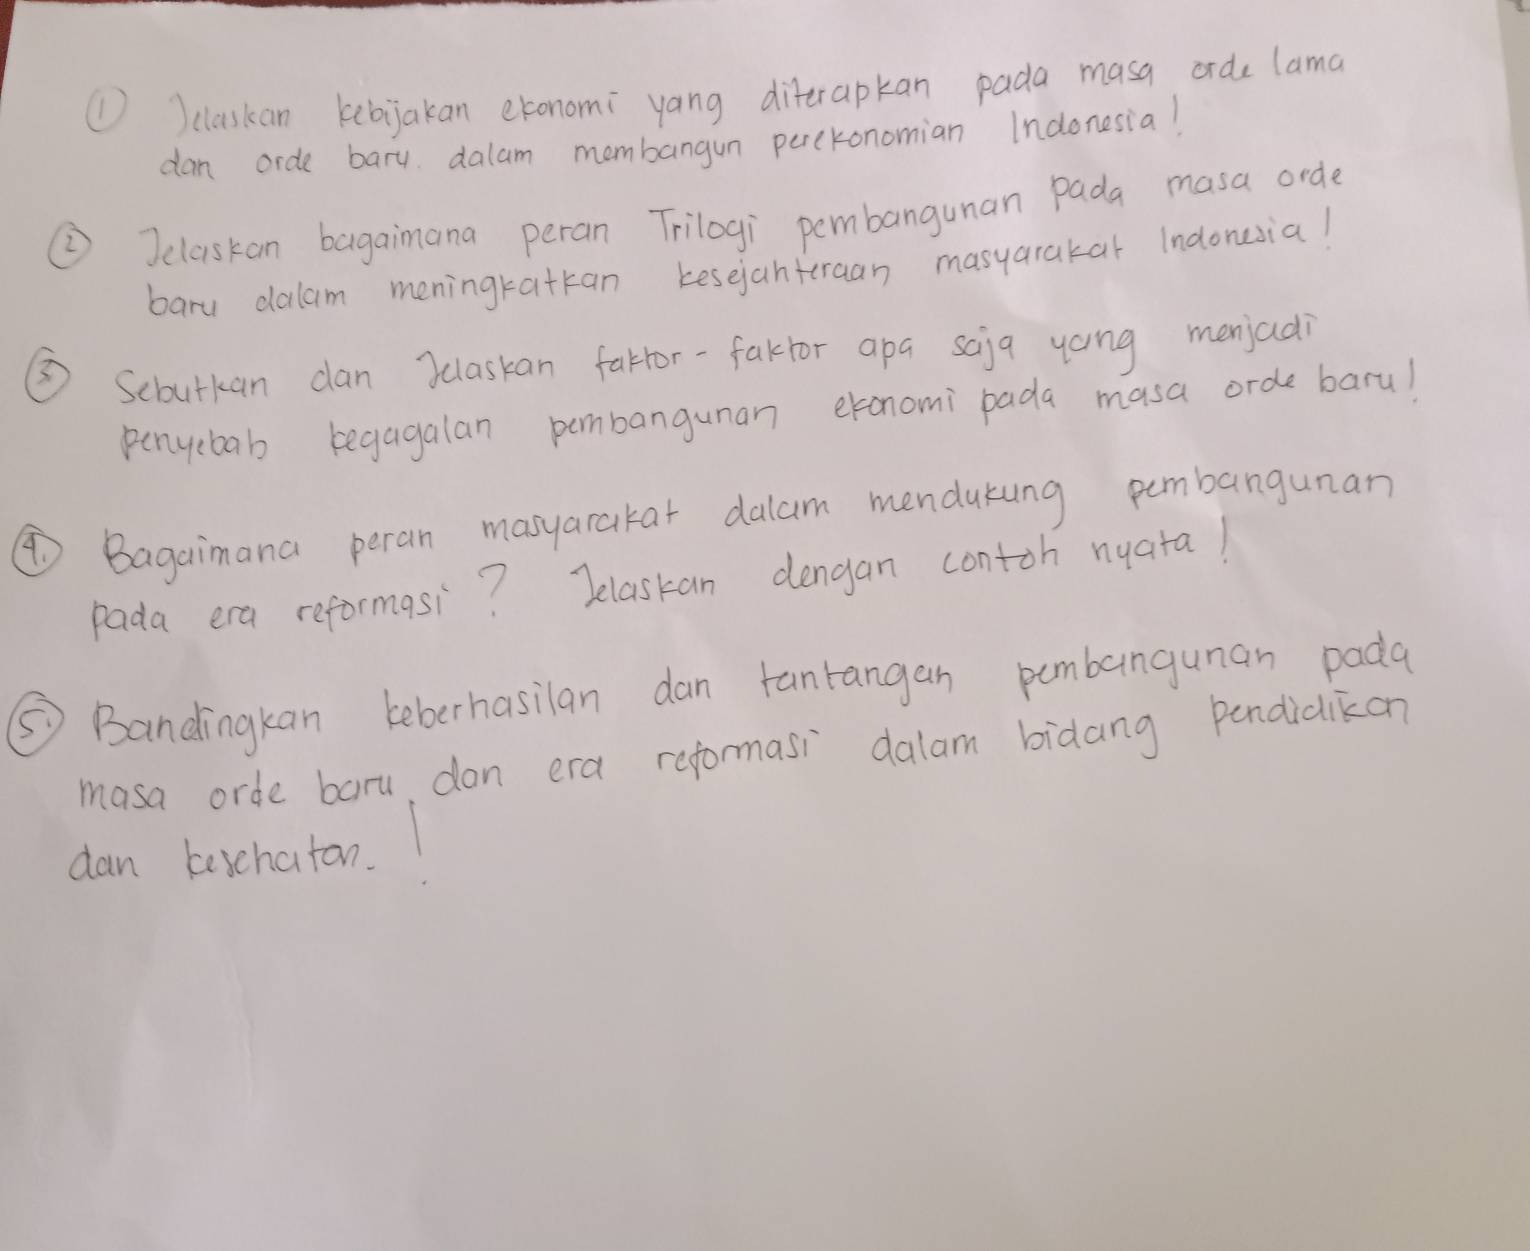 ① Jelaskan kebijakan ekonomi yang diterapkan pada masa orde lama
dan orde baru. dalam membangun perekonomian Indonesia!
② Jelaskan bagaimana peran Trilogi pembangunan pada masa orde
baru dalam meningkatkan kesejahteraan masyarakat Indonesia!
③ Sebutkan dan Jelaskan faktor-faktor apa saja yang menjadi
penyebab kegagalan pembangunan ekonomi pada masa orde baru!
④. Bagaimana peran masyarakat dalam mendukung pembangunan
pada era reformasi? Jelaskan dengan contoh nyata!
⑤. Bandingkan keberhasilan dan tantangan pembangunan pada
masa orde baru, dan era reformasi dalam bidang pendidikan
dan kesehatan. !